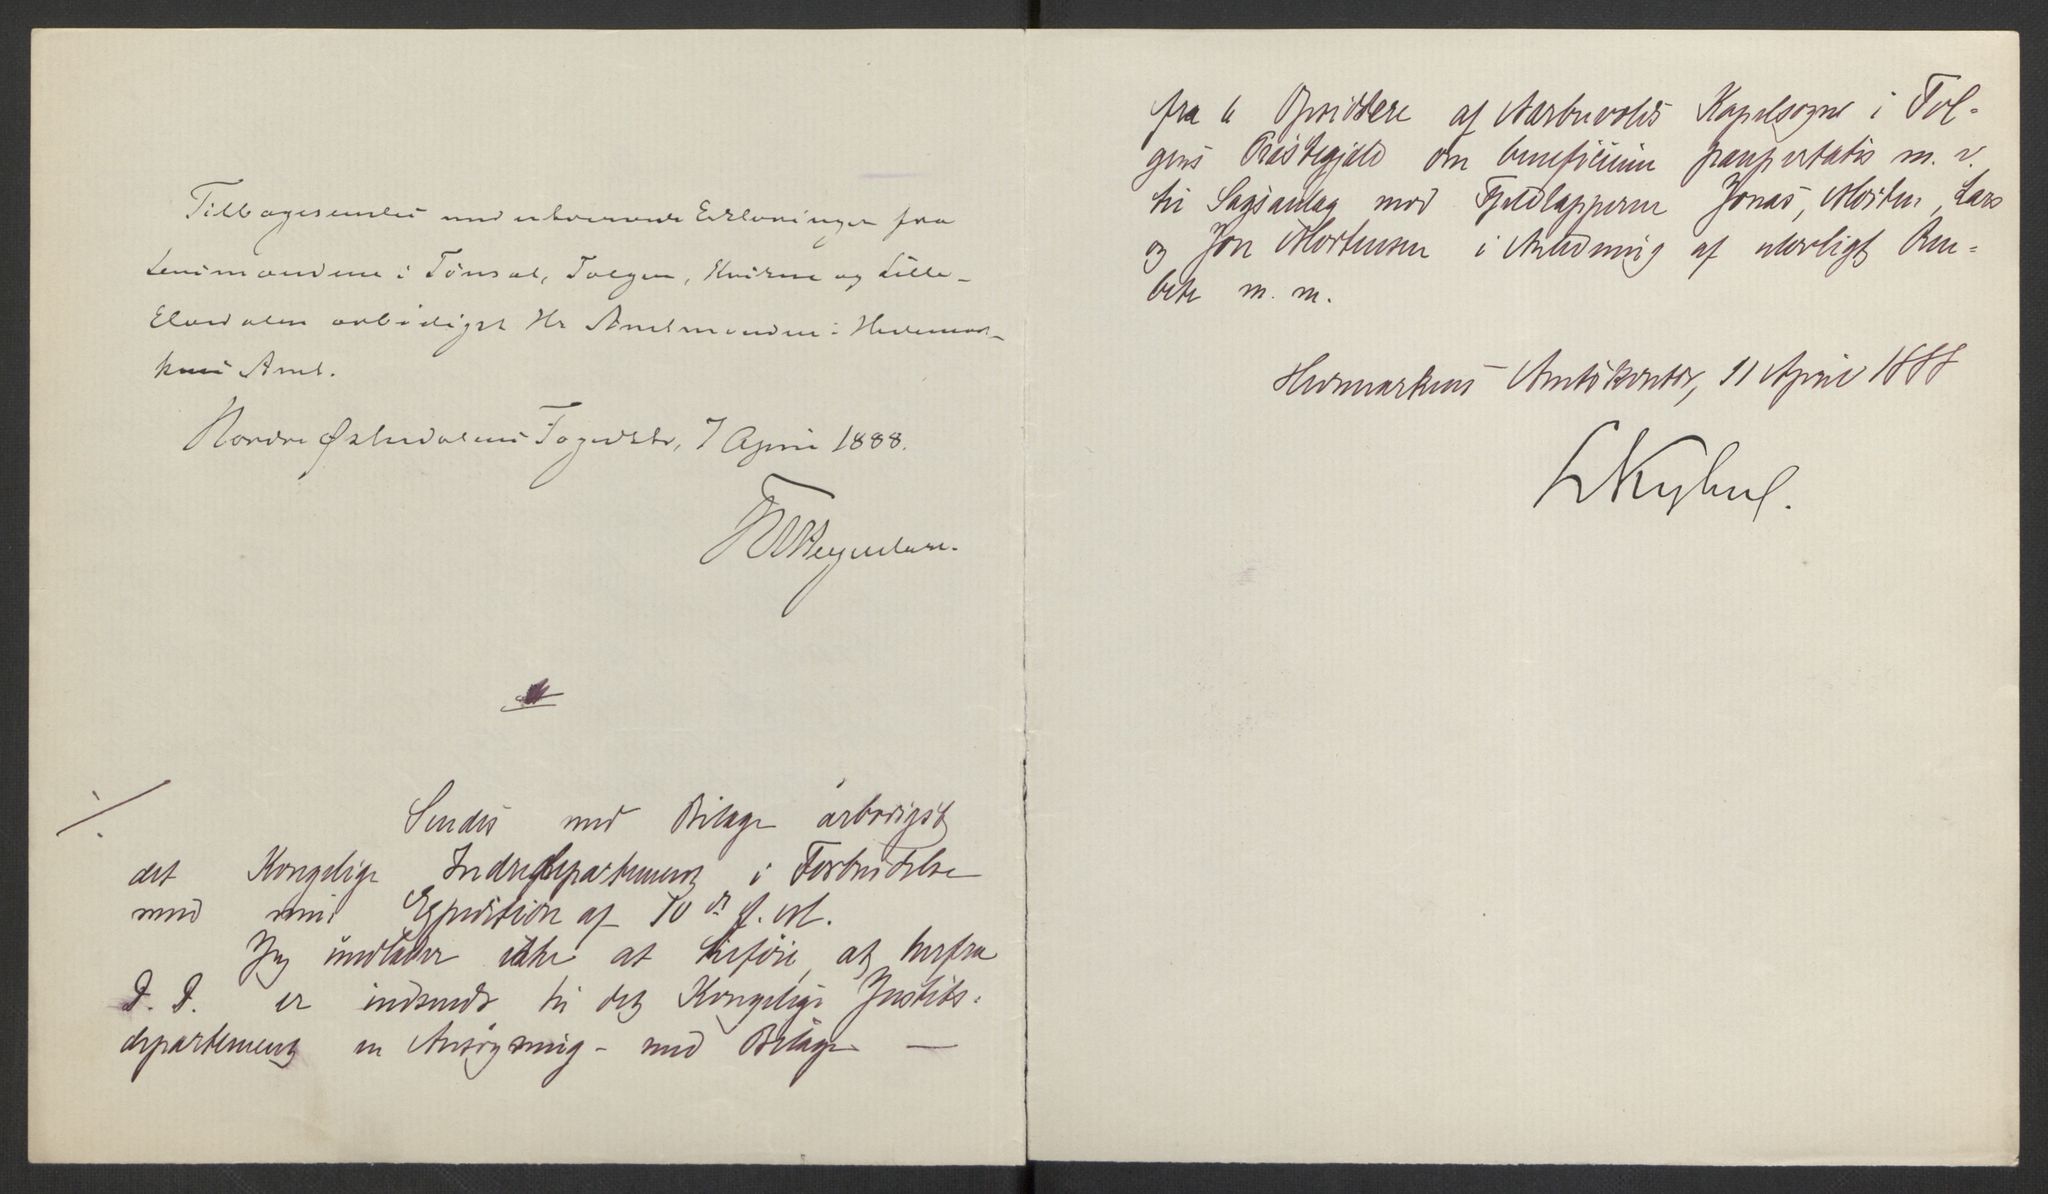 Tilbagesendes med [...] Erklæringer fra
Lensmændene i Tønset, Tolgen, Kvikne og Lille-
Elvedalen ærbødigst Hr Amtmanden i Hedemar-
kens Amt.
Nordre Østerdalens Fogderi, 7 April 1888.
Sendes med Bilage ærbødigst
det Kongelige Indredepartement i Forbindelse
med min Expedition af 10 ds f. M.
Jeg undlader ikke at tilføie, at herfra
D. D. er indsendt til det Kongelige Justits-
departement en Ansøgning - med Bilage —
fra 6 Opsiddere af Aarbuvolds Kapelsogn i Tol-
gens Præstegjeld om beneficium paupertatis m. v.
til Sagsanlæg mod Fjeldlapperne Jonas, Morten, Lars
og Jon Mortensen i Anledning af ulovligt Ren-
bete m. m.
Hedemarkens Amtskontor, 11 April 1888